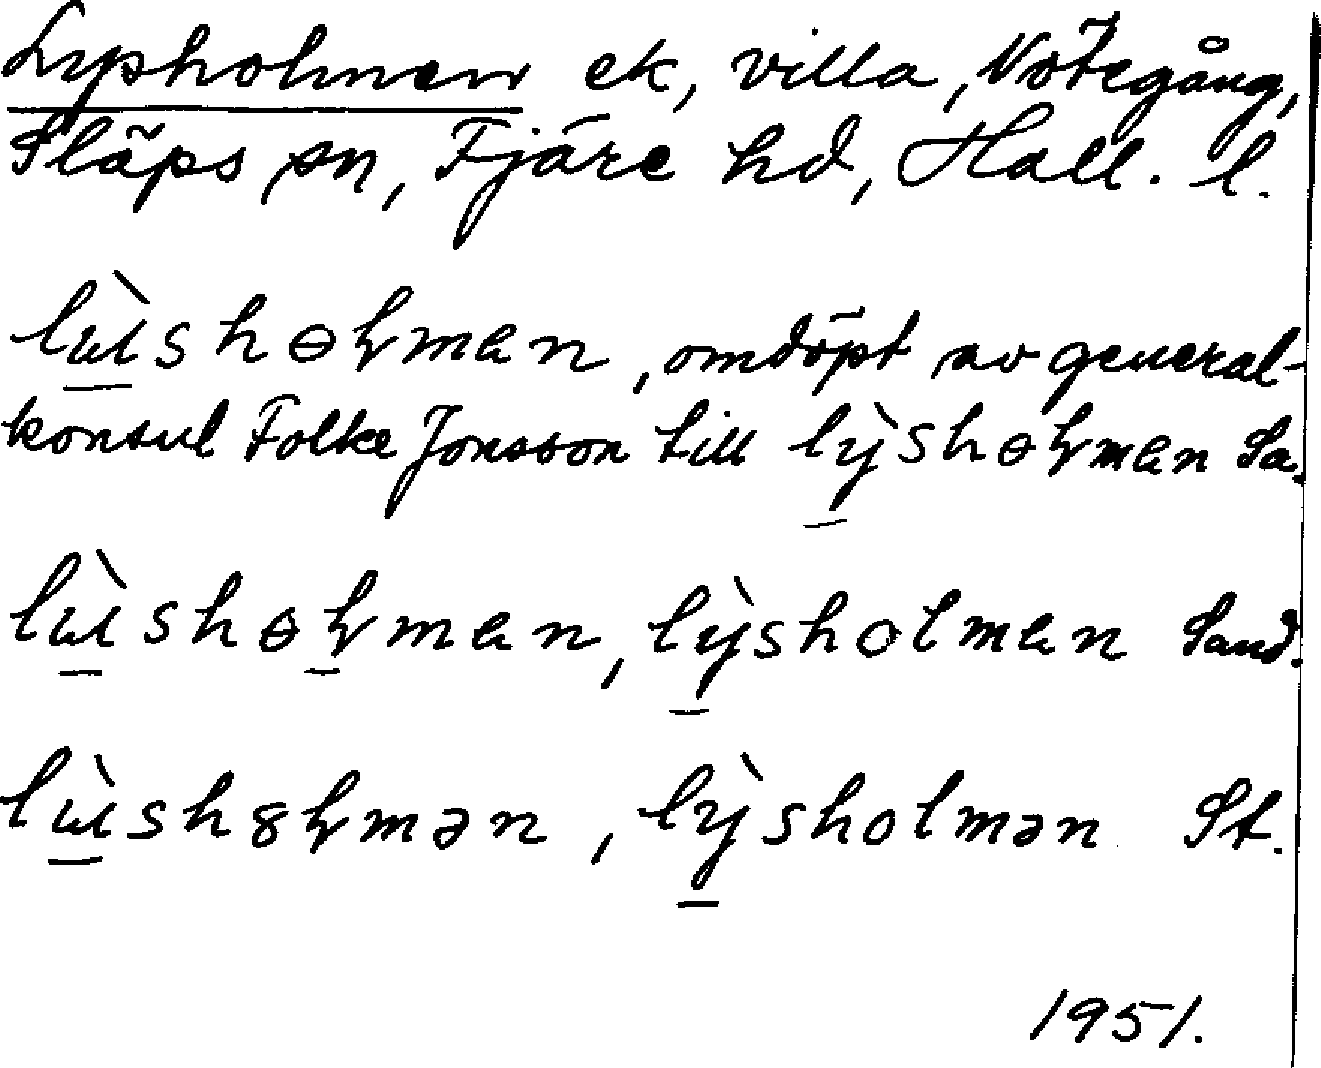 Lysholmen ek, villa, Nötegång,
Släps sn, Fjäre hd, Hall. l.
lɯ̀shɵɫmen, omdöpt av general-
konsul Folke Jonsson till lỳshɵɫmen Sa.
lɯ̀shɵɫmen, lỳsholmen Sand.
lɯ̀sh8ɫmən, lỳsholmən St.
1951.